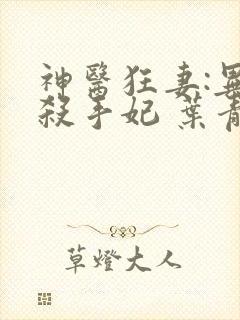 神醫狂妻:
殺手妃 葉青
草燈大人